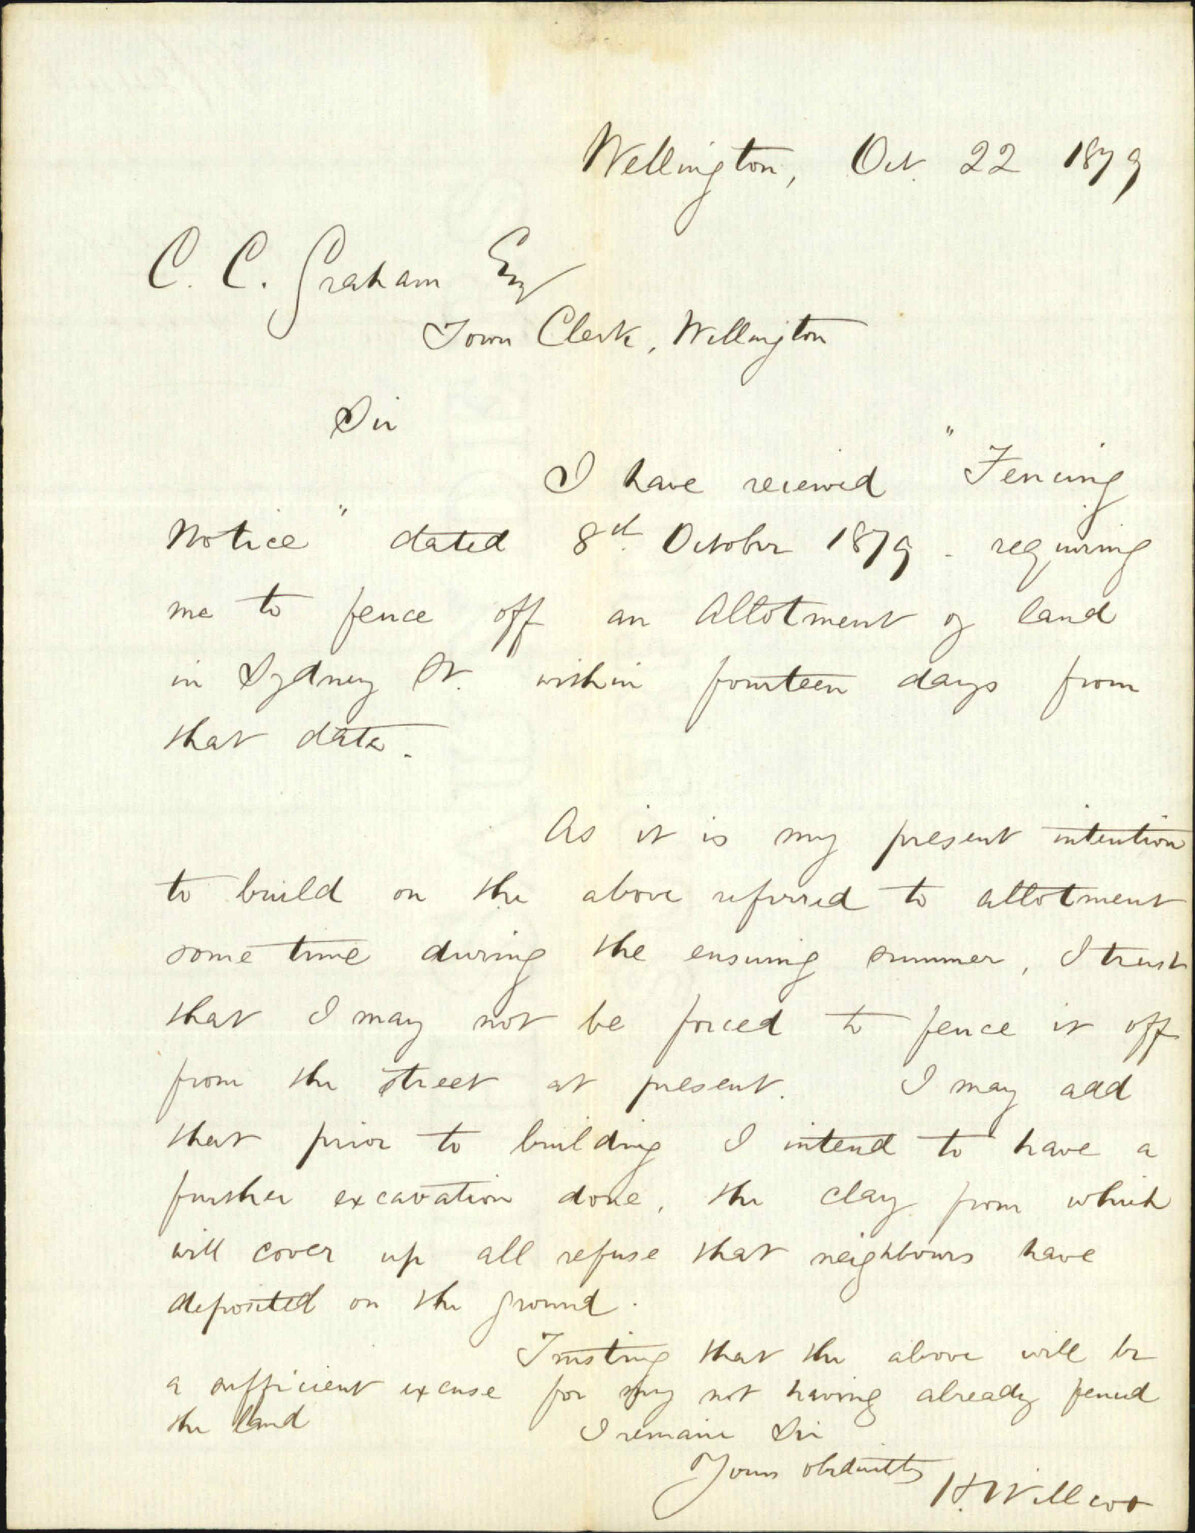 Wellington, Oct. 22 1879
C. C. Graham Esq
Town Clerk, Wellington
Sir
I have received "Fencing
Notice" dated 8th October 1879 - requiring
me to fence off an allotment of land
in Sydney St. within fourteen days from
that date.
As it is my present intention
to build on the above referred to allotment
some time during the ensuing summer, I trust
that I may not be forced to fence it off
from the street at present. I may add
that prior to building I intend to have a
further excavation done, the clay from which
will cover up all refuse that neighbours have
deposited on the ground.
Trusting that the above will be
a sufficient excuse for my not having already fenced
the land
I remain Sir
Yours obediently
H. Willcox